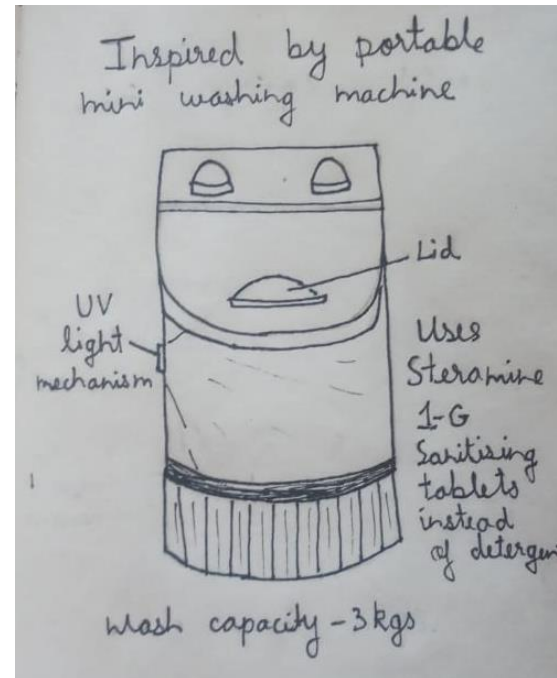 Inspired by portable
mini washing machine
Lid
UV
light
mechanism
Uses
Steramine
1-G
Sanitising
tablets
instead
of detergen
Wash capacity - 3 kgs